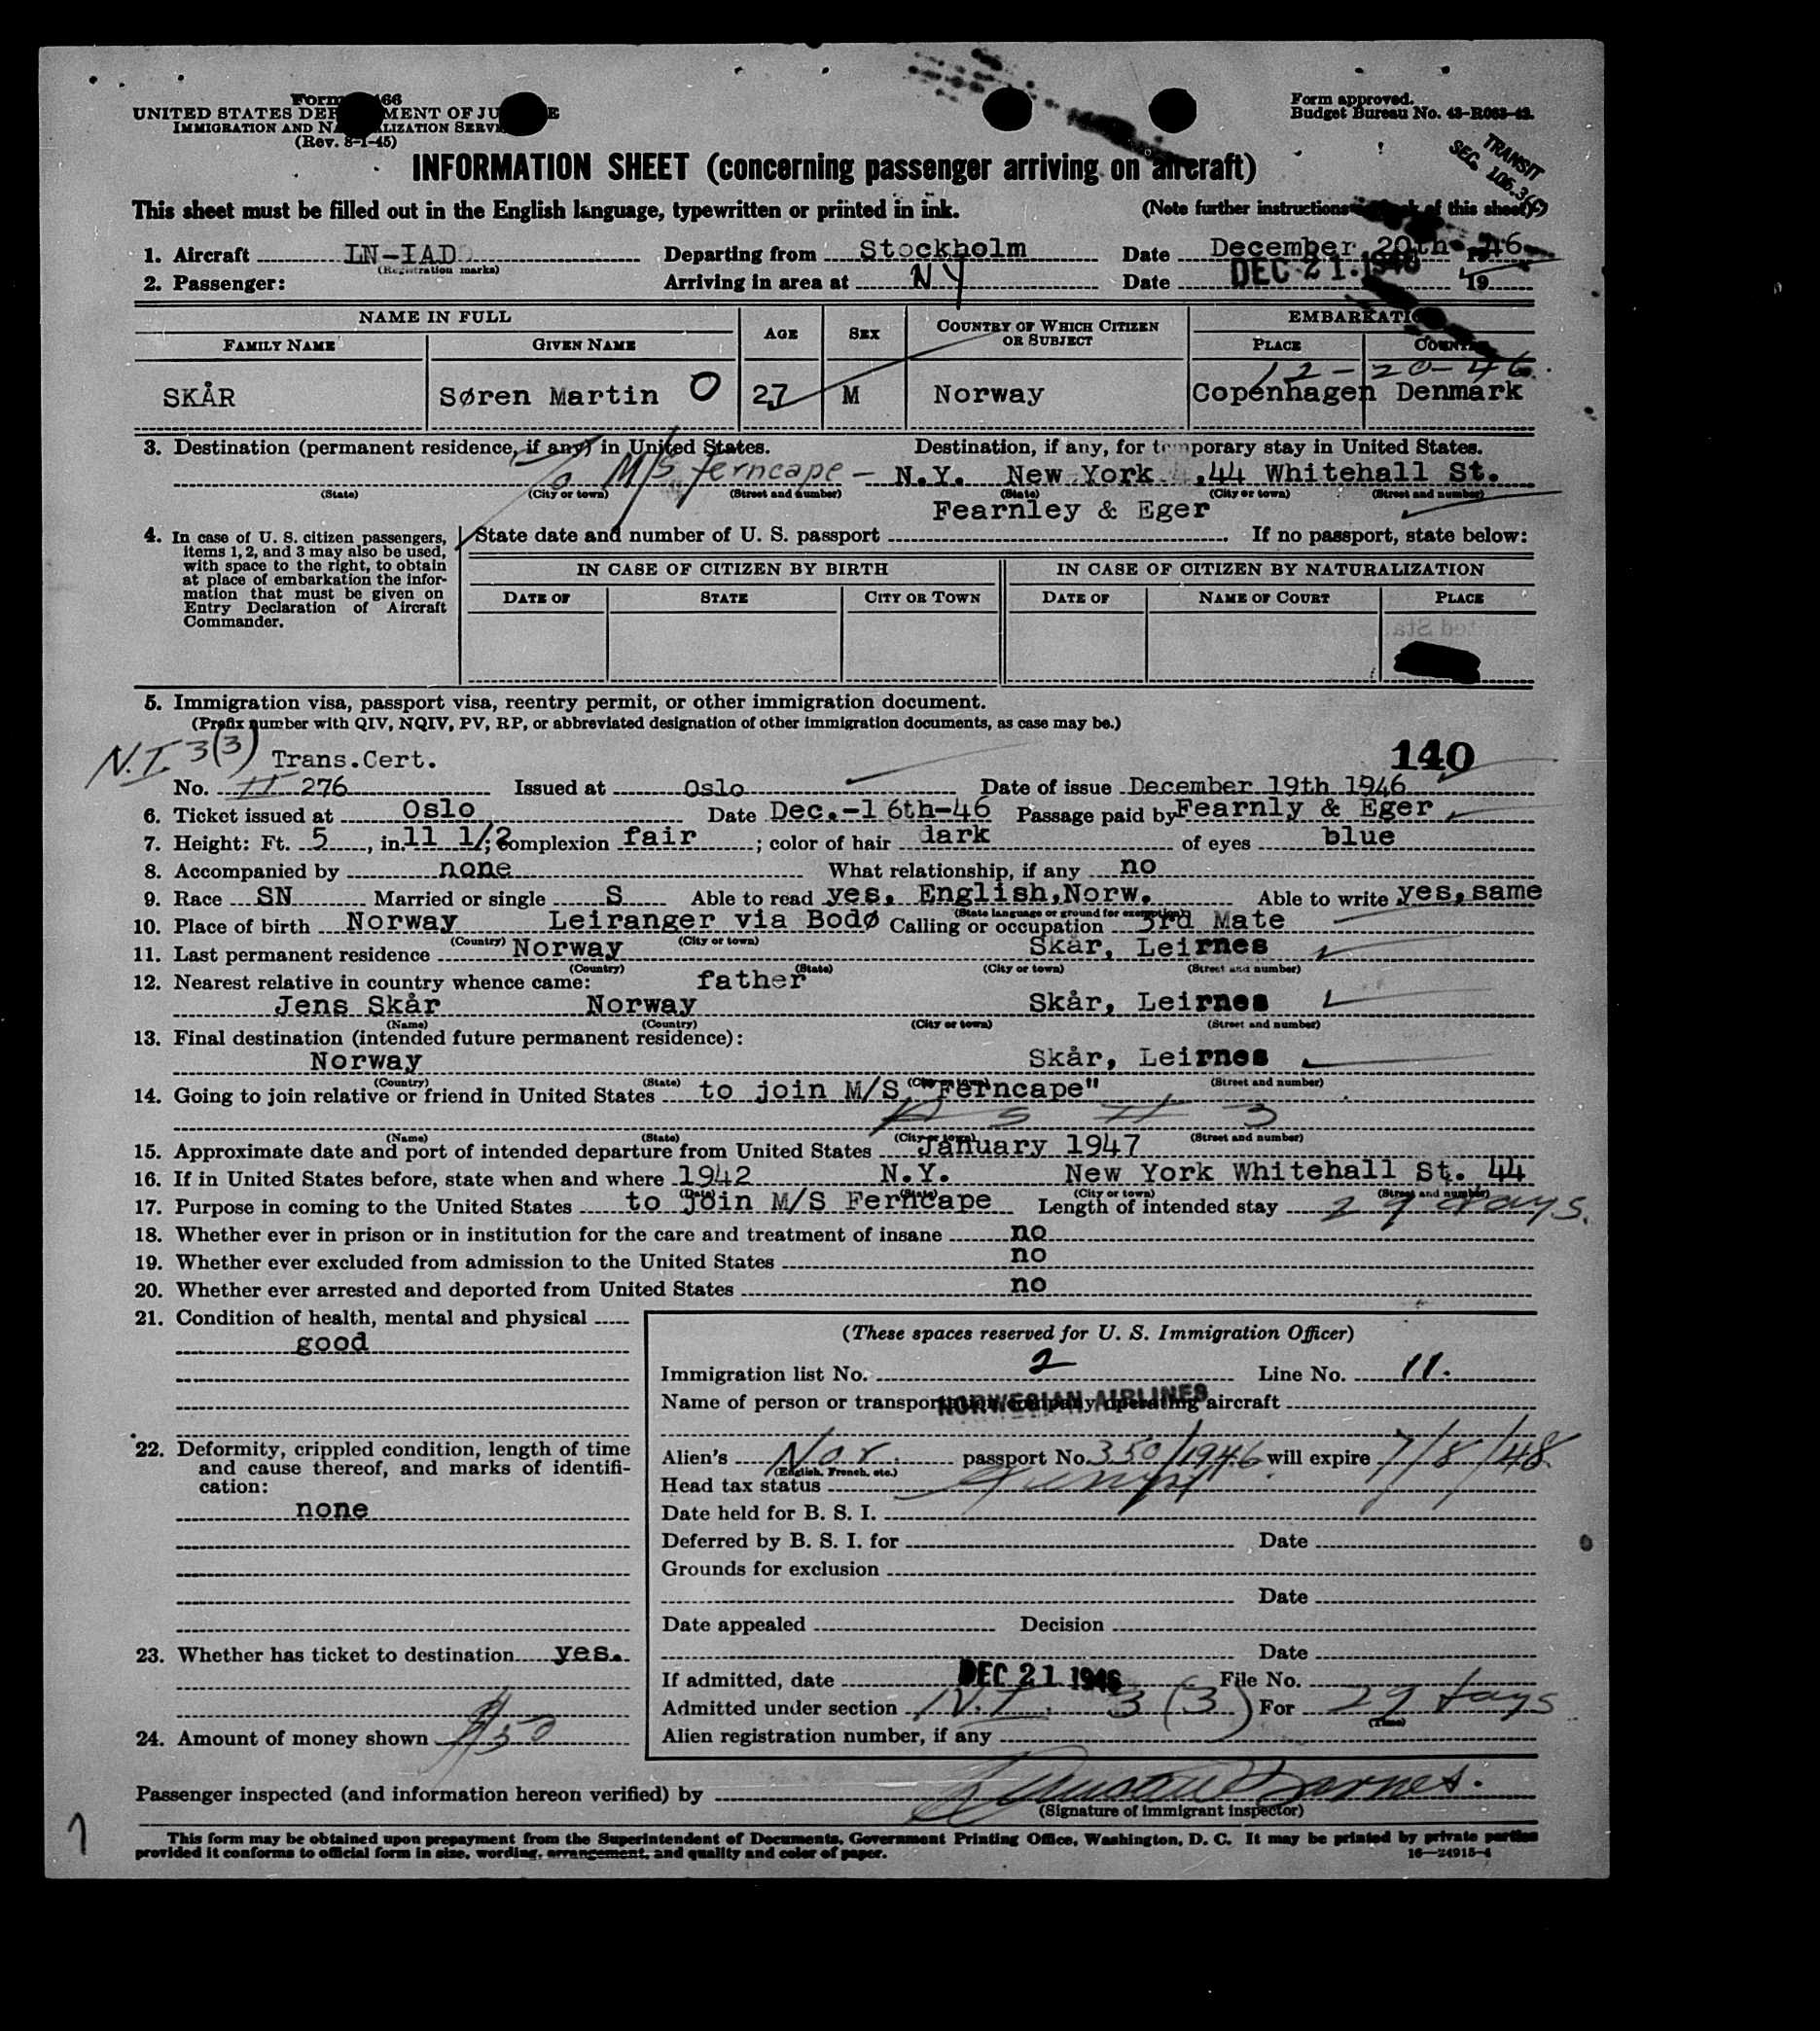 Form 466
UNITED STATES DEPARTMENT OF JUSTICE
IMMIGRATION AND NATURALIZATION SERVICE
(Rev. 8-1-45)
Form approved.
Budget Bureau No. 43-R063-42.
TRANSIT
SEC. 106.3
INFORMATION SHEET (concerning passenger arriving on aircraft)
This sheet must be filled out in the English language, typewritten or printed in ink. (Note further instructions of this sheet)
1. Aircraft LN-IAD Departing from Stockholm Date December 20th 46
(Registration marks)
2. Passenger: Arriving in area at NY Date DEC 21 1946 19
NAME IN FULL AGE SEX COUNTRY OF WHICH CITIZEN OR SUBJECT EMBARKATION
FAMILY NAME GIVEN NAME PLACE COUNTRY
12-20-46.
SKÅR Søren Martin O 27 M Norway Copenhagen Denmark
3. Destination (permanent residence, if any) in United States. Destination, if any, for temporary stay in United States.
c/o M/S ferncape - N.Y. New York 44 Whitehall St.
(State) (City or town) (Street and number) (State) (City or town) (Street and number)
Fearnley & Eger
4. In case of U. S. citizen passengers,
items 1, 2, and 3 may also be used,
with space to the right, to obtain
at place of embarkation the infor-
mation that must be given on
Entry Declaration of Aircraft
Commander.
State date and number of U. S. passport If no passport, state below:
IN CASE OF CITIZEN BY BIRTH IN CASE OF CITIZEN BY NATURALIZATION
DATE OF STATE CITY OR TOWN DATE OF NAME OF COURT PLACE
5. Immigration visa, passport visa, reentry permit, or other immigration document.
(Prefix number with QIV, NQIV, PV, RP, or abbreviated designation of other immigration documents, as case may be.)
N.I. 3(3) Trans.Cert. 140
No. II 276 Issued at Oslo Date of issue December 19th 1946
6. Ticket issued at Oslo Date Dec.-16th-46 Passage paid by Fearnly & Eger
7. Height: Ft. 5, in. 11 1/2; Complexion fair; color of hair dark of eyes blue
8. Accompanied by none What relationship, if any no
9. Race SN Married or single S Able to read yes, English,Norw. Able to write yes,same
(State language or ground for exemption)
10. Place of birth Norway Leiranger via Bodø Calling or occupation 3rd Mate
(Country) (City or town)
11. Last permanent residence Norway Skår, Leirnes
(Country) (State) (City or town) (Street and number)
12. Nearest relative in country whence came: father
Jens Skår Norway Skår, Leirnes
(Name) (Country) (City or town) (Street and number)
13. Final destination (intended future permanent residence):
Norway Skår, Leirnes
(Country) (State) (City or town) (Street and number)
14. Going to join relative or friend in United States to join M/S "Ferncape"
(Name) (State) (City or town) (Street and number)
15. Approximate date and port of intended departure from United States January 1947
16. If in United States before, state when and where 1942 N.Y. New York Whitehall St. 44
(Date) (State) (City or town) (Street and number)
17. Purpose in coming to the United States to join M/S Ferncape Length of intended stay 29 days.
18. Whether ever in prison or in institution for the care and treatment of insane no
19. Whether ever excluded from admission to the United States no
20. Whether ever arrested and deported from United States no
21. Condition of health, mental and physical
good
22. Deformity, crippled condition, length of time
and cause thereof, and marks of identifi-
cation:
none
23. Whether has ticket to destination yes.
24. Amount of money shown $50
(These spaces reserved for U. S. Immigration Officer)
Immigration list No. 2 Line No. 11.
Name of person or transportation company operating aircraft
NORWEGIAN AIRLINES
Alien's Nor. passport No. 350/1946 will expire 7/8/48
(English, French, etc.)
Head tax status
Date held for B. S. I.
Deferred by B. S. I. for Date
Grounds for exclusion
Date
Date appealed Decision
Date
If admitted, date DEC 21 1946 File No.
Admitted under section N.I. 3(3) For 29 days
(Time)
Alien registration number, if any
Passenger inspected (and information hereon verified) by
(Signature of immigrant inspector)
This form may be obtained upon prepayment from the Superintendent of Documents, Government Printing Office, Washington, D. C. It may be printed by private parties
provided it conforms to official form in size, wording, arrangement, and quality and color of paper.
16—24915-4